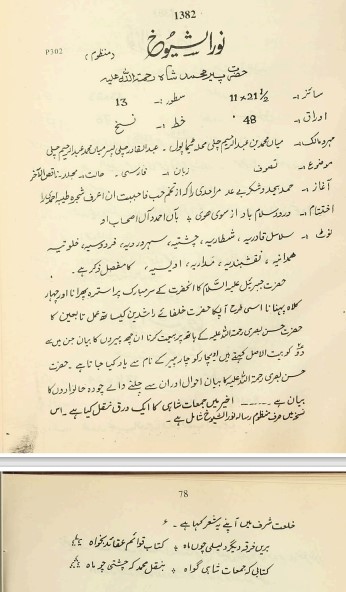 1382
P302
نور الشیوخ
(منظوم)
حضرت پیر محمد شاہ رحمۃ اللہ علیہ
سائز :- 11×21½ سطور :- 13
اوراق :- 48 خط :- نسخ
مہرہ مالک :- میاں محمد بن عبد الرحیم چلی محمد
موضوع :- تصوف زبان :- فارسی حالت :- مجلد، ناقص الآخر
آغاز :- حمد بیحد و شکر بے عد مر احدی را کہ از
اختتام :- درود و سلام باد از سوی
نوٹ :- سلاسل قادریہ، شطاریہ، چشتیہ، سہروردیہ، فردوسیہ، خلوتیہ
ہمدانیہ، نقشبندیہ، مداریہ، اویسیہ، کا مفصل ذکر ہے۔
حضرت جبرئیل علیہ السلام کا آنحضرت کے سر مبارک پر استرہ پھرانا اور چہار
کلاہ پہنانا اسی طرح آپ کا حضرت خلفائے راشدین کیساتھ عمل تابعین کا
حضرت حسن بصری رحمۃ اللہ علیہ کے ہاتھ پر بیعت کرنا ان چھ پیروں کا بیان جن میں سے
دو کو بیت الاصل کہتے ہیں اور چار کو چار پیر کے نام سے یاد کیا جاتا ہے۔ حضرت
حسن بصری رحمۃ اللہ علیہ کا بیان احوال اور ان سے چلنے والے چودہ خانوادوں کا
بیان ہے ۔۔۔۔۔ اخیر میں جمعات شاہی کا ایک ورق نقل کیا ہے۔ اس
نسخہ میں صرف منظوم رسالہ نور الشیوخ شامل ہے۔
78
خلعت شرف میں آپنے یہ شعر کہا ہے۔
برین خرقہ دیگر دلیلی چوں ماہ ؛ کتاب قوائم عقائد بخواہ
کتابی کہ جمعات شاہی گواہ ؛ بنقل محمد کہ چشتی چو ماہ